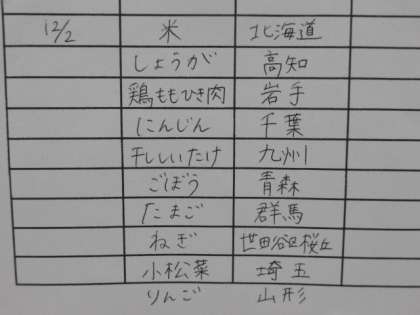 12/2 米 北海道
しょうが 高知
鶏ももひき肉 岩手
にんじん 千葉
干ししいたけ 九州
ごぼう 青森
たまご 群馬
ねぎ 世田谷区桜丘
小松菜 埼玉
りんご 山形